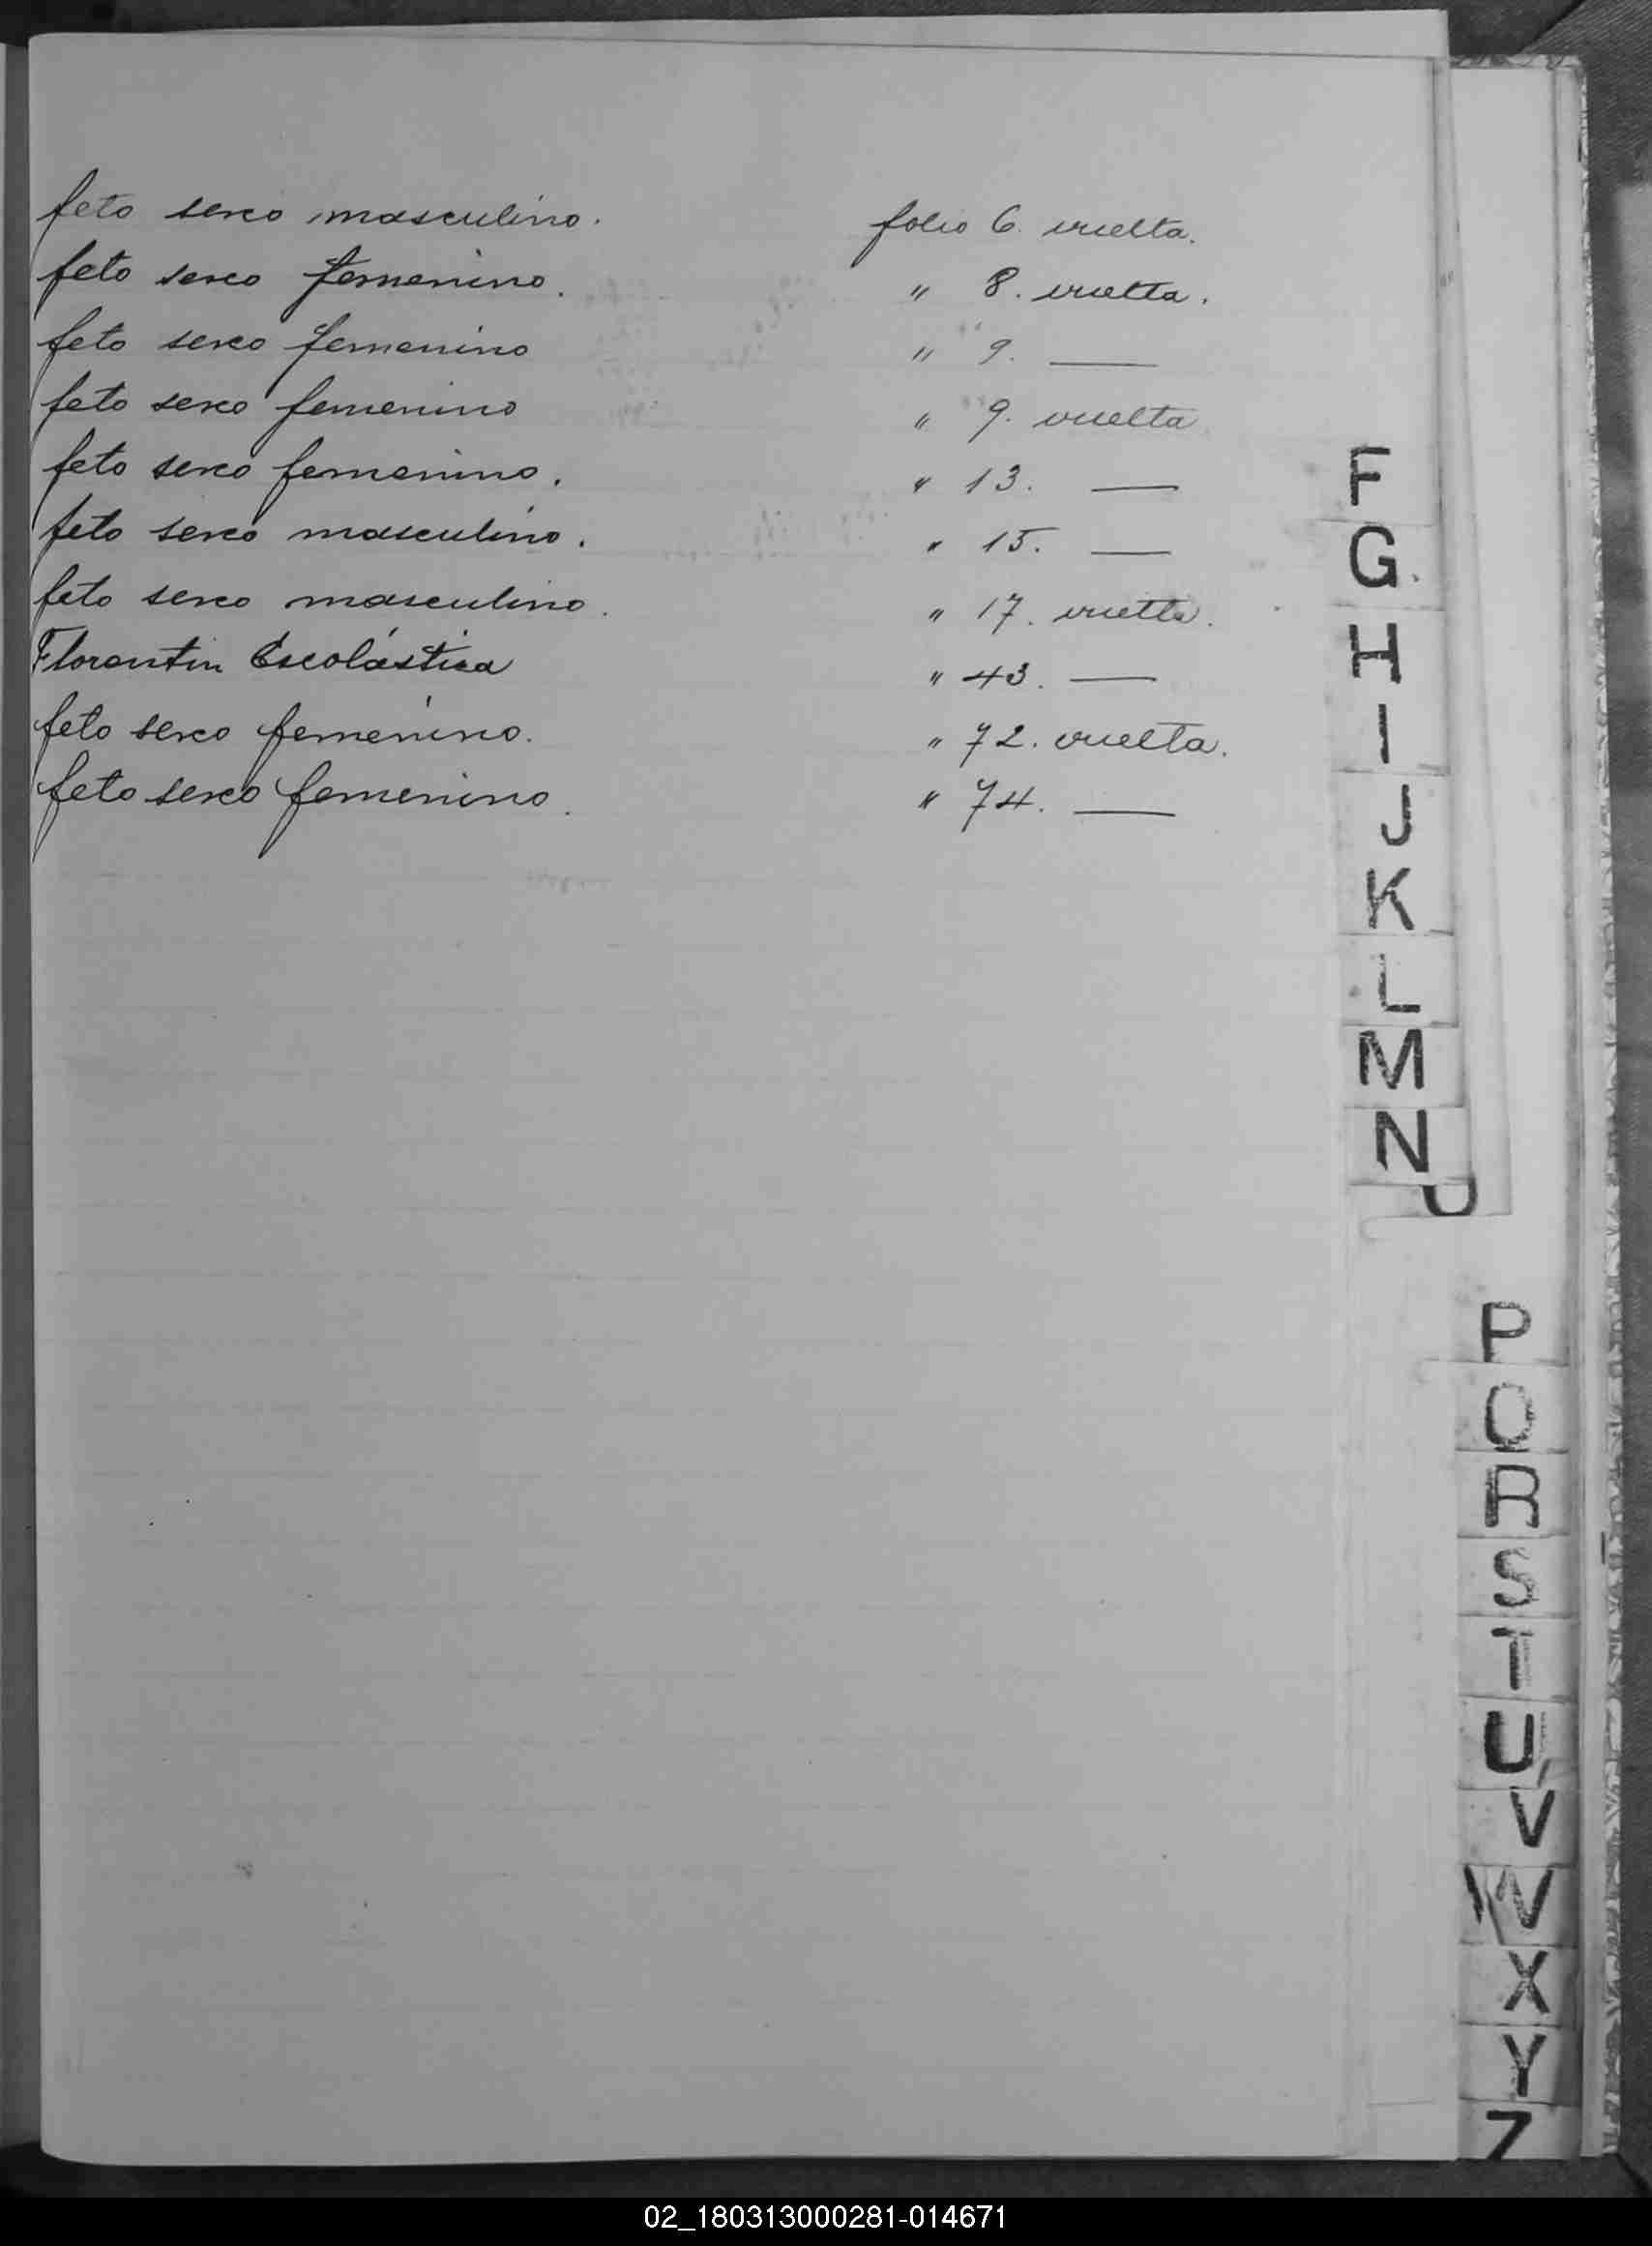 feto sexo masculino. folio 6 vuelta.
feto sexo femenino. " 8. vuelta.
feto sexo femenino " 9. —
feto sexo femenino " 9. vuelta
feto sexo femenino. " 13. —
feto sexo masculino. " 15. —
feto sexo masculino. " 17. vuelta.
Florentin Escolástica " 43. —
feto sexo femenino. " 72. vuelta.
feto sexo femenino. " 74. —
F
G
H
I
J
K
L
M
N
O
P
Q
R
S
T
U
V
W
X
Y
Z
02_180313000281-014671